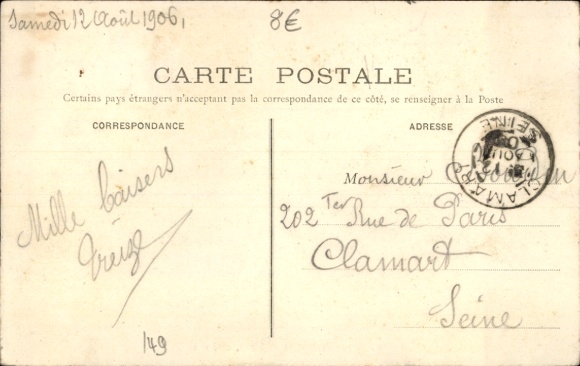 Samedi 12 Août 1906,
8€
CARTE POSTALE
Certains pays étrangers n'acceptant pas la correspondance de ce côté, se renseigner à la Poste
CORRESPONDANCE
ADRESSE
Mille baisers
149
Monsieur
202 Ter Rue de Paris
Clamart
Seine
CLAMART
SEINE